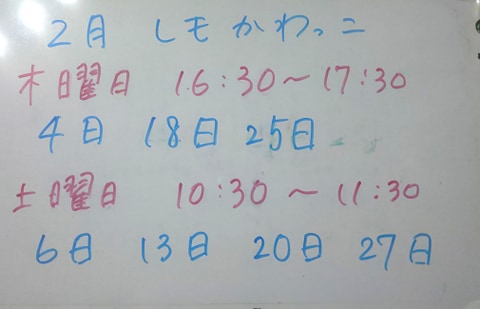 2月 しモかわっこ
木曜日 16:30～17:30
4日 18日 25日
土曜日 10:30～11:30
6日 13日 20日 27日